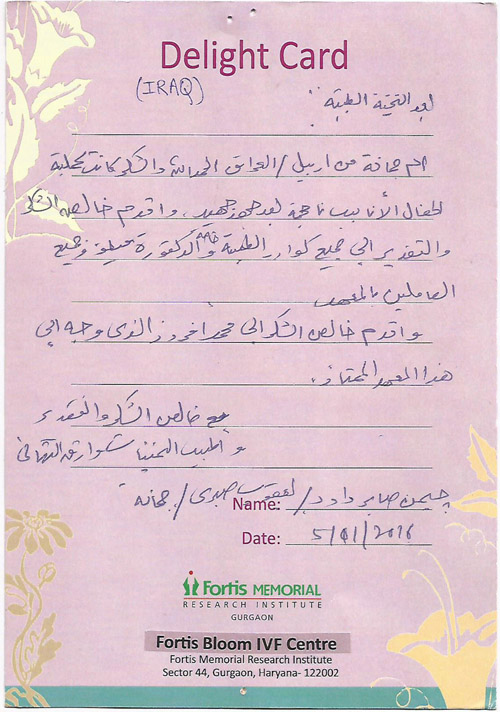 Delight Card
(IRAQ)
بعد التحية الطيبة
ام جمانة من اربيل / العراق الحمد لله والشكر كانت عملية
اطفال الأنابيب ناجحة بعد جهد جهيد، واقدم خالص الشكر
والتقدير الى جميع كوادر الطبية خاصة الدكتورة وجميع
العاملين بالمعهد
واقدم خالص الشكر الى محمد افروز الذي وجه الى
هذا المعهد الممتاز.
مع خالص الشكر والتقدير
واطيب التهاني
جيمن صابر داود / يعقوب صبري / جمانه
Name:
Date: 5/01/2016
Fortis MEMORIAL
RESEARCH INSTITUTE
GURGAON
Fortis Bloom IVF Centre
Fortis Memorial Research Institute
Sector 44, Gurgaon, Haryana- 122002